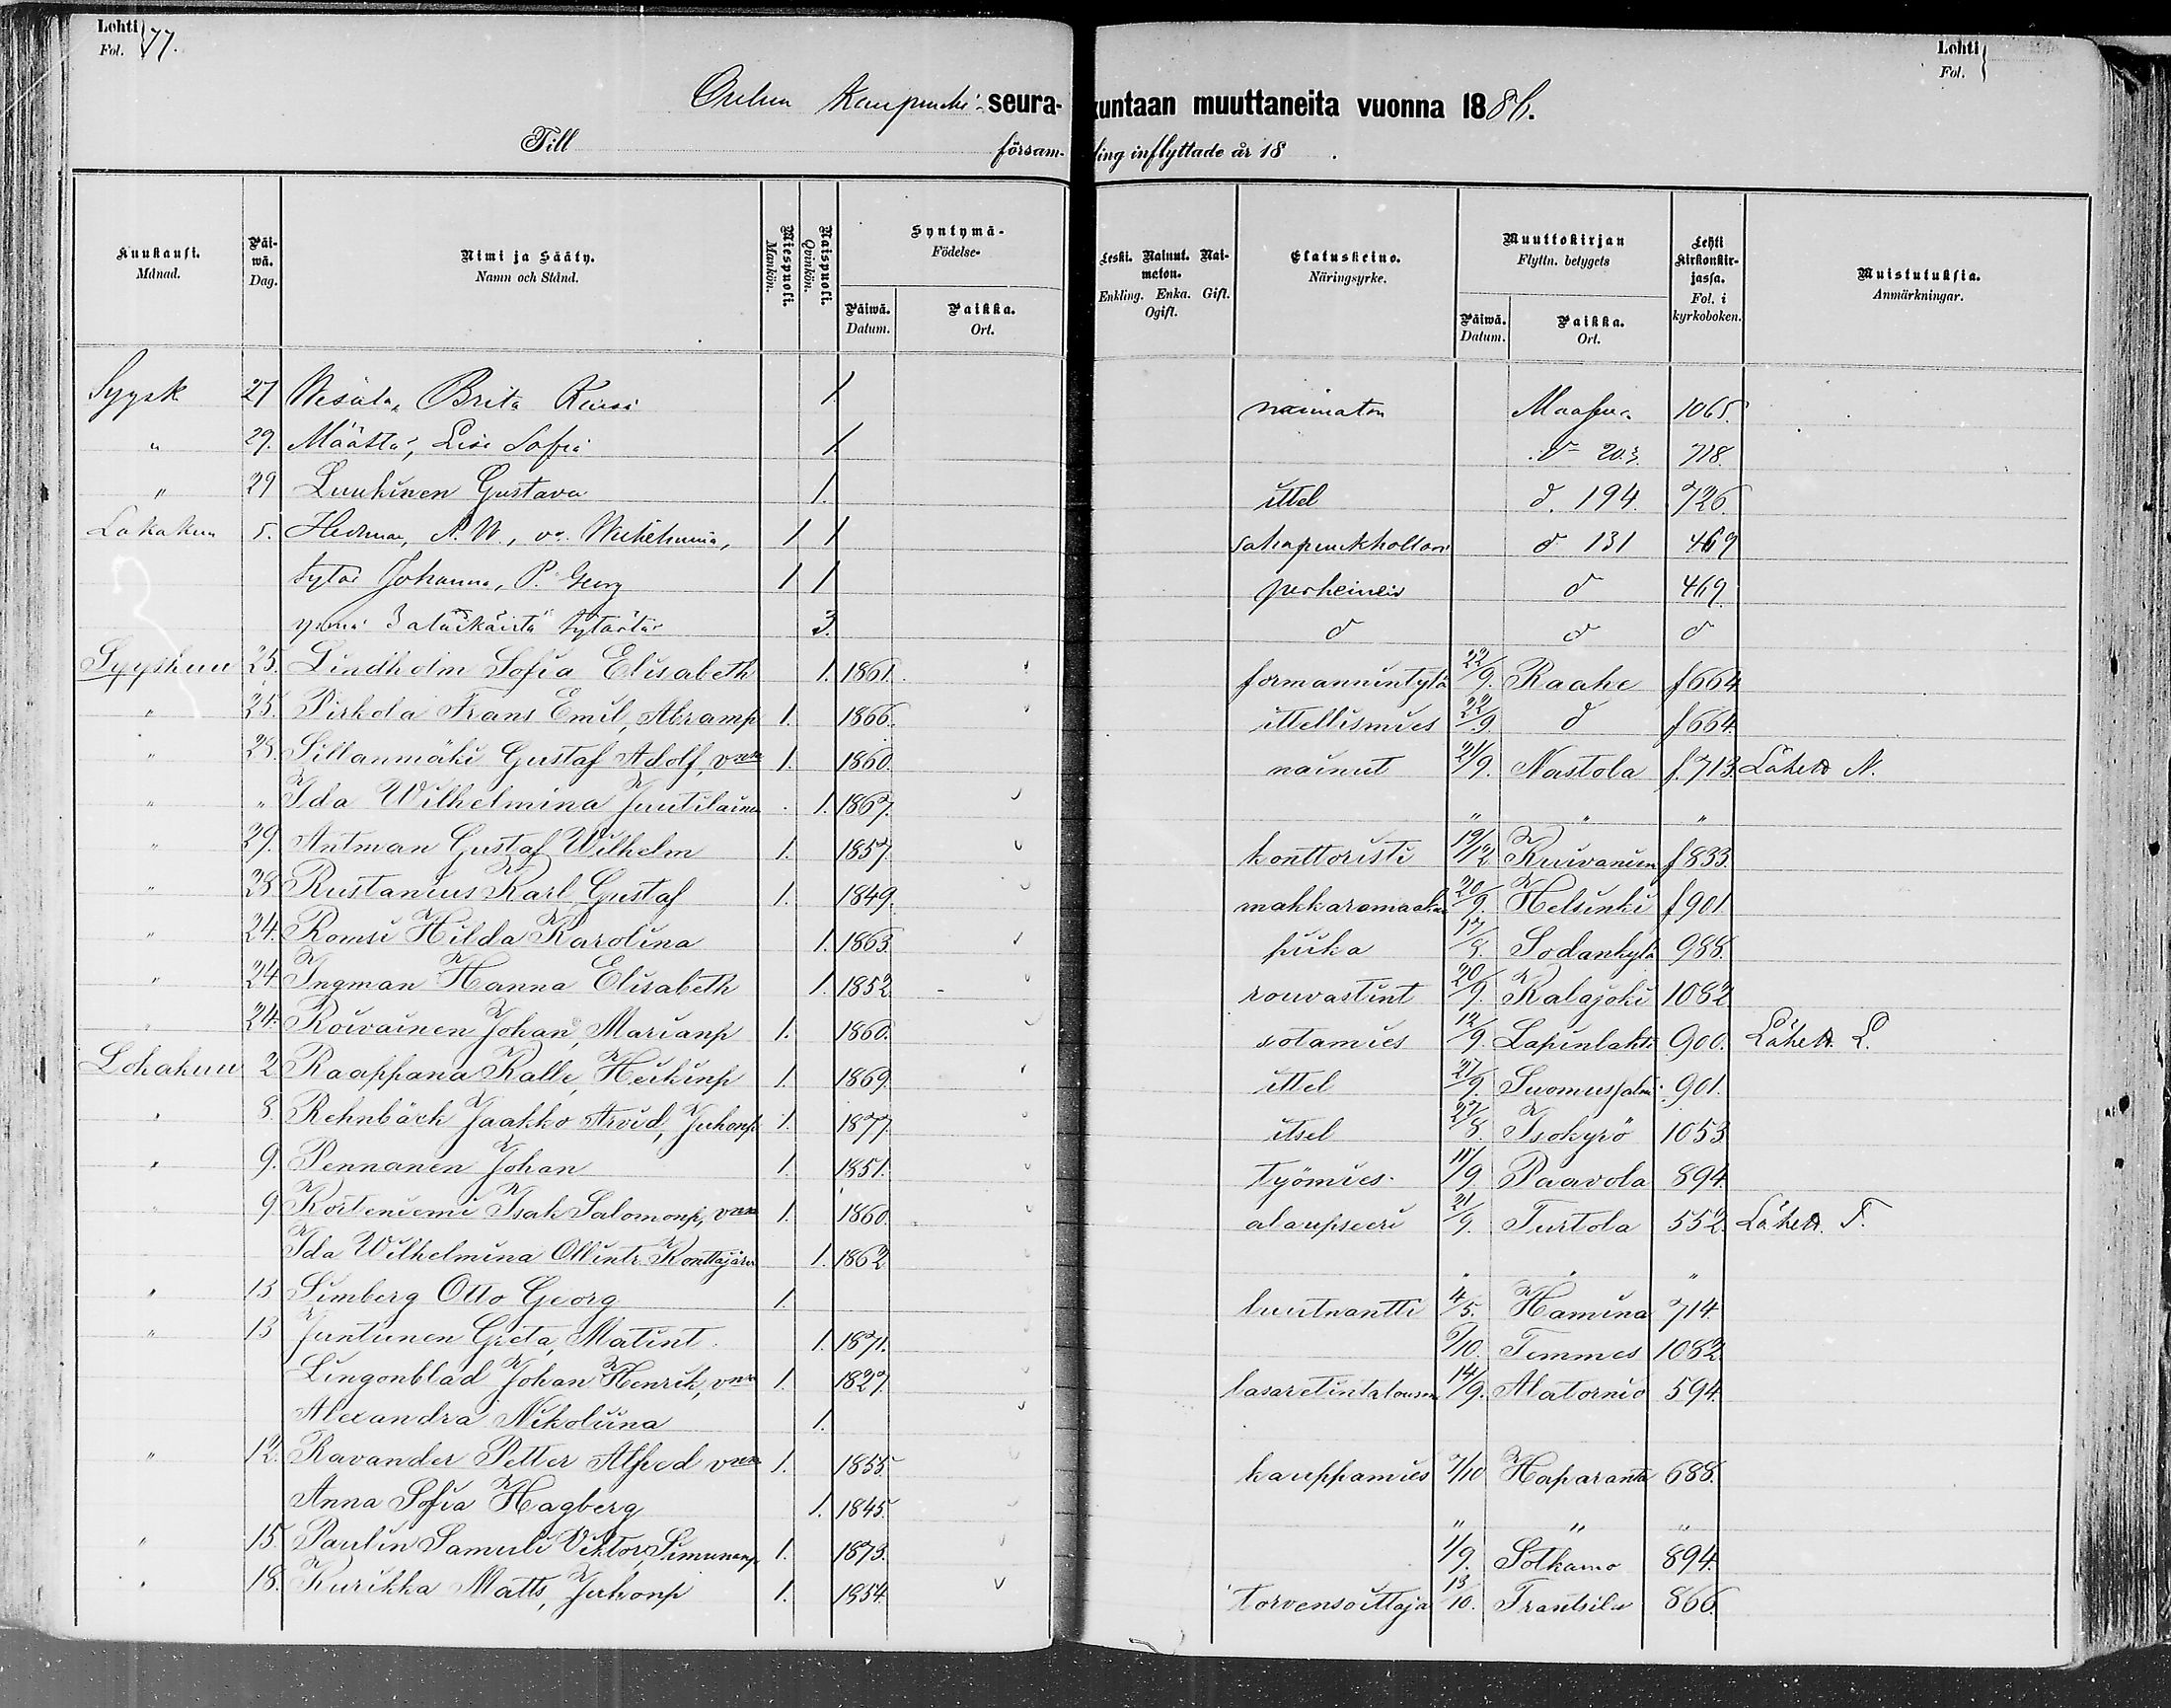 Lohti Fol. 77.
Lohti Fol.
Oulun kaupunki seurakuntaan muuttaneita vuonna 1886.
Till församling inflyttade år 18 .
Kuukausi. Månad. Päiwä. Dag. Nimi ja Sääty. Namn och Stånd. Miespuoli. Mankön. Naispuoli. Qvinkön. Syntymä- Födelse- Päiwä. Datum. Paikka. Ort. Leski. Nainut. Naimaton. Enkling. Enka. Gift. Ogift. Elatuskeino. Näringsyrke. Muuttokirjan Flyttn. betygets Päiwä. Datum. Paikka. Ort. Lehti Kirkonkirjassa. Fol. i kyrkoboken. Muistutuksia. Anmärkningar.
Syysk 27 Brita 1 naimaton 1065.
" 29. Määttä, Lisa Sofia 1 d 203 718.
" 29 Luukinen Gustava 1. ittel d. 194. 726.
Lokakuu 5. Hedman, 1 1 d 131 469
tytär Johanna, P. Georg 1 1 perheineis d 469.
3 alaikäistä tytärtä 3. d d d
Syyskuu 25. Lindholm Sofia Elisabeth 1. 1861. formannintytä 22/9. Raahe f 664
" 25. Pirkola Frans Emil, Abramp 1. 1866. ittellismies 22/9. d f 664.
" 28. Sillanmäki Gustaf Adolf, 1. 1860. nainut 21/9. Nastola f. 713. Lähett N.
" " Ida Wilhelmina Juutilainen 1. 1867. " " "
" 29. Antman Gustaf Wilhelm 1. 1857. konttoristi 19/12 Kuivaniem f 833.
" 28 Rustanius Karl Gustaf 1. 1849. 20/9. Helsinki f 901.
" 24. Romsi Hilda Karolina 1. 1863. piika Sodankylä 988.
" 24 Ingman Hanna Elisabeth 1. 1852 rouvastint 20/9. Kalajoki 1082
" 24. Roivainen Johan, Marianp 1. 1860. sotamies 12/9. Lapinlahti 900. Lähett. L.
Lokakuu 2 Raappana Kalle, Heikinp 1. 1869. ittel 27/9. Suomussalmi 901.
" 8. Rehnbäck Jaakko Arvid, Juhonp 1. 1877. itsel 27/8. Isokyrö 1053
" 9. Pennanen Johan 1. 1851. työmies. 11/9. Paavola 894
" 9. Korteniemi Isak Salomonp, 1. 1860 alaupseeri 21/9. Turtola 552 Lähett. T.
Ida Wilhelmina Ollintr Konttajärvi 1. 1862 " " "
" 13 Simberg Otto Georg 1. luutnantti 4/5. Hamina 714.
" 13 Juntunen Greta, Matint. 1. 1871. Temmes 1082.
Lingonblad Johan Henrik, 1. 1827. 14/9. Alatornio 594.
Alexandra Nikoliina 1.
" 12. Ravander Petter Alfred 1. 1855 kauppamies 7/10 Haparanta 688.
Anna Sofia Hagberg 1. 1845. " " "
" 15. Paulin Samuli Viktor, Simunanp 1. 1873. 1/9. Sotkamo 894.
" 18. Kurikka Matts, Juhonp 1. 1854. torvensoittaja 13/10. Frantsila 866.